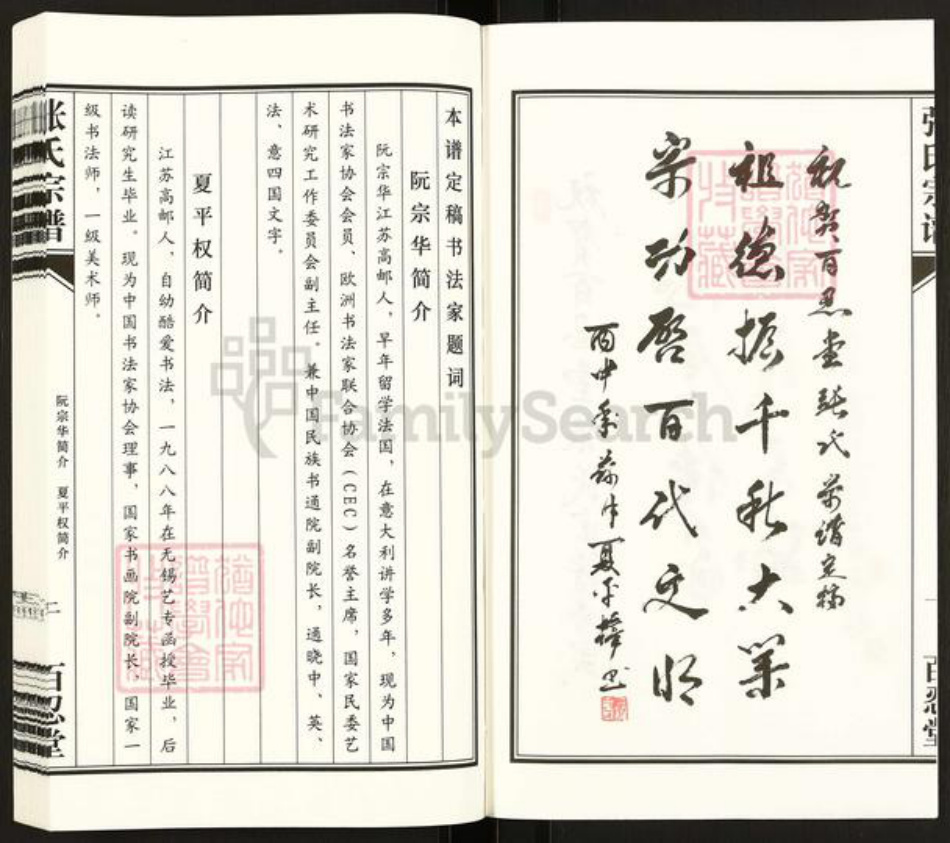 祝贺百忍堂张氏宗谱定稿
祖德振千秋大业
宗功启百代文明
丙申季为中夏平权书
张氏宗谱
百忍堂
本谱定稿书法家题词
阮宗华简介
阮宗华江苏高邮人，早年留学法国，在意大利讲学多年，现为中国
书法家协会会员、欧洲书法家联合协会（CEC）名誉主席，国家民委艺
术研究工作委员会副主任。兼中国民族书通院副院长，通晓中、英、
法、意四国文字。
夏平权简介
江苏高邮人，自幼酷爱书法，一九八八年在无锡艺专函授毕业，后
读研究生毕业。现为中国书法家协会理事，国家书画院副院长，国家一
级书法师，一级美术师。
张氏宗谱
阮宗华简介 夏平权简介
二
百忍堂
FamilySearch